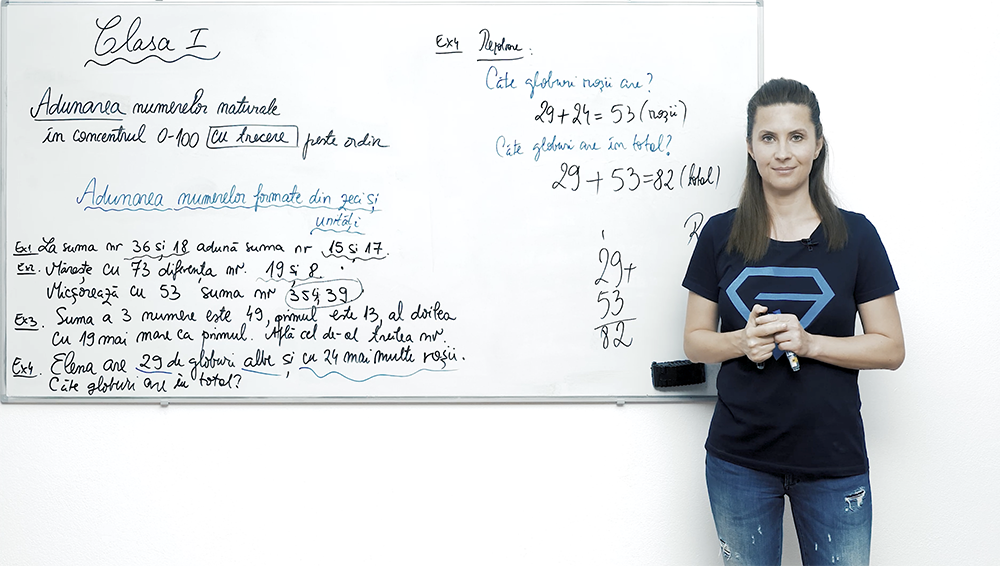 Clasa I
Adunarea numerelor naturale
în concentrul 0-100 cu trecere peste ordin
Adunarea numerelor formate din zeci și
unități
Ex1 La suma nr 36 și 18 adună suma nr 15 și 17.
Ex2. Mărește cu 73 diferența nr. 19 și 8.
Micșorează cu 53 suma nr 35 și 39
Ex3. Suma a 3 numere este 49, primul este 13, al doilea
cu 19 mai mare ca primul. Află cel de-al treilea nr.
Ex4. Elena are 29 de globuri albe și cu 24 mai multe roșii.
Câte globuri are în total?
Ex4 Rezolvare:
Câte globuri roșii are?
29+24=53 (roșii)
Câte globuri are în total?
29+53=82 (total)
R
1
29+
53
82